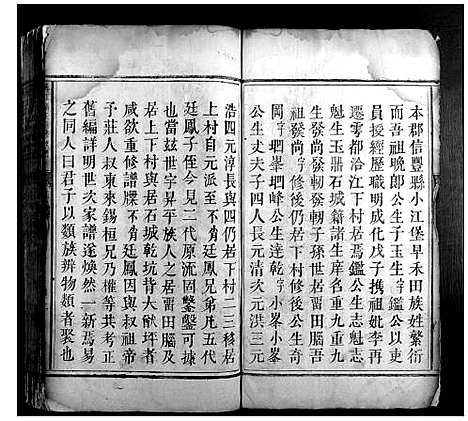 本郡信豐縣小江堡早禾田族姓繁衍
而吾祖晚郎公生子玉生字鑑公以吏
員授經歷職明成化戊子携祖妣李再
遷雩都洽江下村居焉鑑公生志魁志
魁生玉鼎石城籍諸生庠名重九重九
生發尚發軔發軔子孫世居畱田腦吾
祖發尚字修後仍居下村修後公生奇
岡字 峯 峰公生達字 小峯小峯
公生丈夫子四人長元清次元洪三元
浩四元淳長與四仍居下村二三移居
上村自元派至不肖廷鳳兄弟凡五代
廷鳳子侄今見二代原流固鑿鑿可據
也當茲世字昇平族人之居畱田腦及
居上村下村與居石城乾坑背大猷坪者
咸欲重修譜牒不肖廷鳳因與叔祖帝
予莊人叔東來錫桓兄乃權等共考正
舊編詳明世次家譜遂煥然一新焉易
之同人曰君子以類族辨物類者聚也